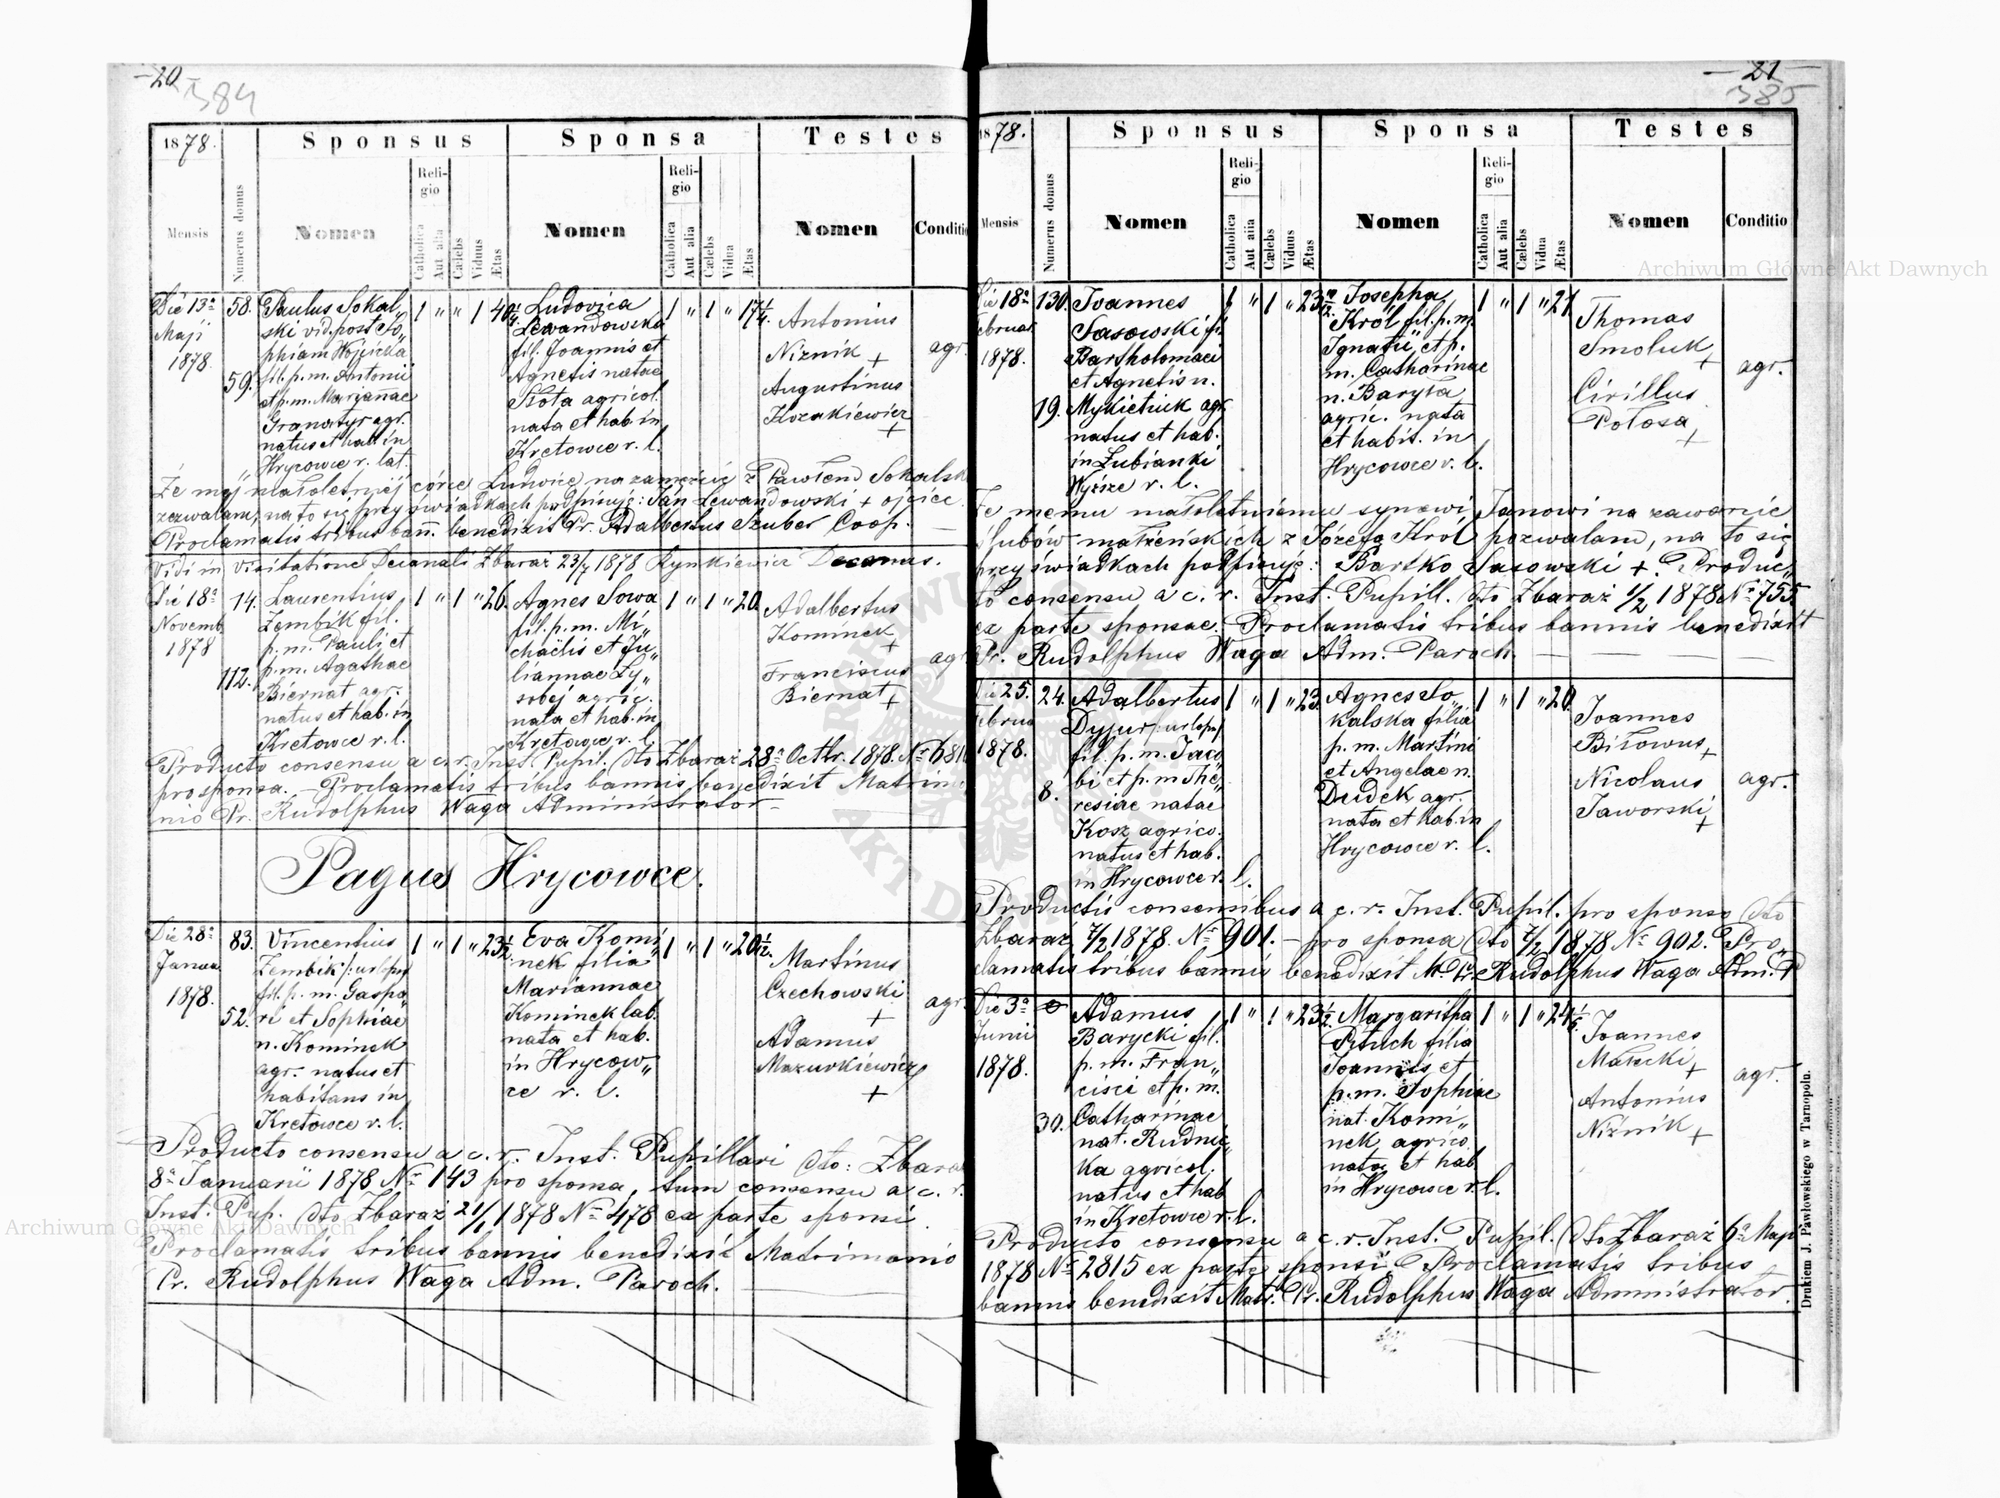 -20-
384
1878.
Sponsus
Sponsa
Testes
Mensis
Numerus domus
Nomen
Religio
Catholica
Aut alia
Cælebs
Viduus
Ætas
Nomen
Religio
Catholica
Aut alia
Cælebs
Vidua
Ætas
Nomen
Conditio
Die 13a
Maji
1878.
58.
59.
Paulus Sokal„
ski vid. post So„
phiam Wojcicka
fil. p. m. Antonii
et p. m. Maryanae
Granatyr agr.
natus et hab. in
Hrycowce r. lat.
1 " " 1
Ludovica
Lewandowska
fil. Joannis et
Agnetis natae
Słota agricol.
nata et hab. in
Kretowce r. l.
1 " 1 " 17 1/4.
Antonius
Niznik +
Augustinus
Kozakiewicz
+
agr.
Że mej małoletniej córce Ludwice na zamęście z Pawłem Sokalsk
zezwalam, na to się przy świadkach podpisuję: Jan Lewandowski + ojciec.
Proclamatis tribus bann. benedixit Pr. Adalbertus Szuber Coop. —
Vidi in Visitatione Decanali Zbaraż 23/7 1878 Rynkiewicz Decanus.
Die 18a
Novemb.
1878
14.
112.
Laurentius
Zembik fil.
p. m. Pauli et
p. m. Agathae
Biernat agr.
natus et hab. in
Kretowce r. l.
1 " 1 " 26.
Agnes Sowa
fil. p. m. Mi„
chaelis et Ju„
liannae Ły„
sobej agric.
nata et hab. in
Kretowce r. l.
1 " 1 " 20.
Adalbertus
Kominek
+
Franciscus
Biernat +
agr
Producto consensu a c. r. Inst. Pupil. dto Zbaraż 28a Octbr. 1878. No 681
pro sponsa. — Proclamatis tribus bannis benedixit Matrimo
nio Pr. Rudolphus Waga Administrator —
Pagus Hrycowce.
Die 28a
Januar
1878.
83.
52.
Vincentius
Zembik /: urlop
fil. p. m. Gaspa„
ri et Sophiae
n. Kominek
agr. natus et
habitans in
Kretowce r. l.
1 " 1 " 23 1/2.
Eva Komi„
nek filia
Mariannae
Kominek lab.
nata et hab.
in Hrycow„
ce r. l.
1 " 1 " 20 1/12.
Martinus
Czechowski
+
Adamus
Mazurkiewicz
+
agr.
Producto consensu a c. r. Inst. Pupillari dto: Zbara
8a Januarii 1878 No 143 pro sponsa, tum consensu a c. r.
Inst. Pup. dto Zbaraż 21/1 1878 No 478 ex parte sponsi.
Proclamatis tribus bannis benedixit Matrimonio
Pr. Rudolphus Waga Adm. Paroch. —
-21-
385
1878.
Sponsus
Sponsa
Testes
Mensis
Numerus domus
Nomen
Religio
Catholica
Aut alia
Cælebs
Viduus
Ætas
Nomen
Religio
Catholica
Aut alia
Cælebs
Vidua
Ætas
Nomen
Conditio
Die 18a
Februar.
1878.
130.
19.
Joannes
Sasowski fi.
Bartholomaei
et Agnetis n.
Mykietiuk agr.
natus et hab.
in Łubianki
Wyższe r. l.
1 " 1 "
Josepha
Król fil. p. m.
Ignatii et p.
m. Catharinae
n. Baryła
agric. nata
et habit. in
Hrycowce r. l.
1 " 1 " 21.
Thomas
Smoluk
+
Cirillus
Połosa
+
agr.
Że memu małoletniemu synowi Janowi na zawarcie
ślubów małżeńskich z Józefą Król pozwalam, na to się
przy świadkach podpisuję: Bartko Sasowski +. Produc„
to consensu a c. r. Inst. Pupill. dto Zbaraż 1/2 1878 No 755
ex parte sponsae. Proclamatis tribus bannis benedixit
Pr. Rudolphus Waga Adm. Paroch. — — — —
Die 25.
Februa
1878.
24.
8.
Adalbertus
Dyjur /: urlop/
fil. p. m. Jaco
bi et p. m. The„
resiae natae
Kosz agrico.
natus et hab.
in Hrycowce r. l.
1 " 1 " 23.
Agnes So„
kalska filia
p. m. Martini
et Angelae n.
Dudek agr.
nata et hab. in
Hrycowce r. l.
1 " 1 " 20.
Joannes
Biłowus
+
Nicolaus
Jaworski
+
agr.
Productis consensibus a c. r. Inst. Pupil. pro sponso dto
Zbaraż 7/2 1878. No 901. — pro sponsa dto 7/2 1878 No 902. Pro„
clamatis tribus bannis benedixit M. Pr. Rudolphus Waga Adm. P
Die 3a
Junii
1878.
30.
Adamus
Barycki fil.
p. m. Fran„
cisci et p. m.
Catharinae
nat. Rudnic„
ka agricol.
natus et hab.
in Kretowce r. l.
1 " 1 " 23 1/2.
Margaritha
Ptuch filia
Joannis et
p. m. Sophiae
nat. Komi„
nek agrico.
nata et hab.
in Hrycowce r. l.
1 " 1 " 24 1/5.
Joannes
Małecki
+
Antonius
Niznik +
agr.
Producto consensu a c. r. Inst. Pupil. dto Zbaraż 6a Maji
1878 No 2815 ex parte sponsi. Proclamatis tribus
bannis benedixit Matr. Pr. Rudolphus Waga Administrator.
Drukiem J. Pawłowskiego w Tarnopolu.
Archiwum Główne Akt Dawnych
Archiwum Główne Akt Dawnych